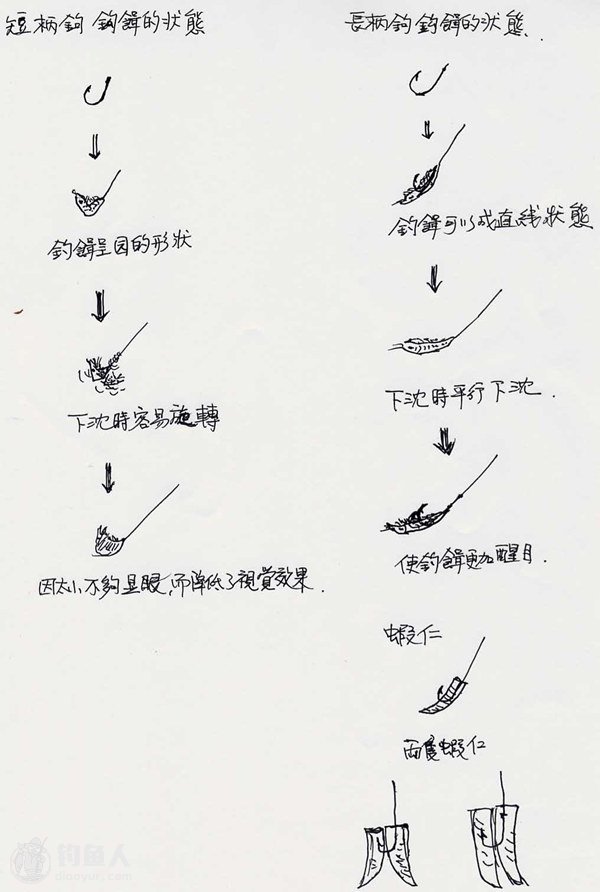 短柄鉤 鈎餌的状態
釣餌呈园的形状
下沈時容易旋轉
因太小不夠显眼,而降低了視覺效果.
長柄鈎 釣餌的状態.
釣餌可以成直线状態
下沈時平行下沈.
使釣餌更加醒目.
蝦仁
両隻蝦仁
钓鱼人
diaoyur.com